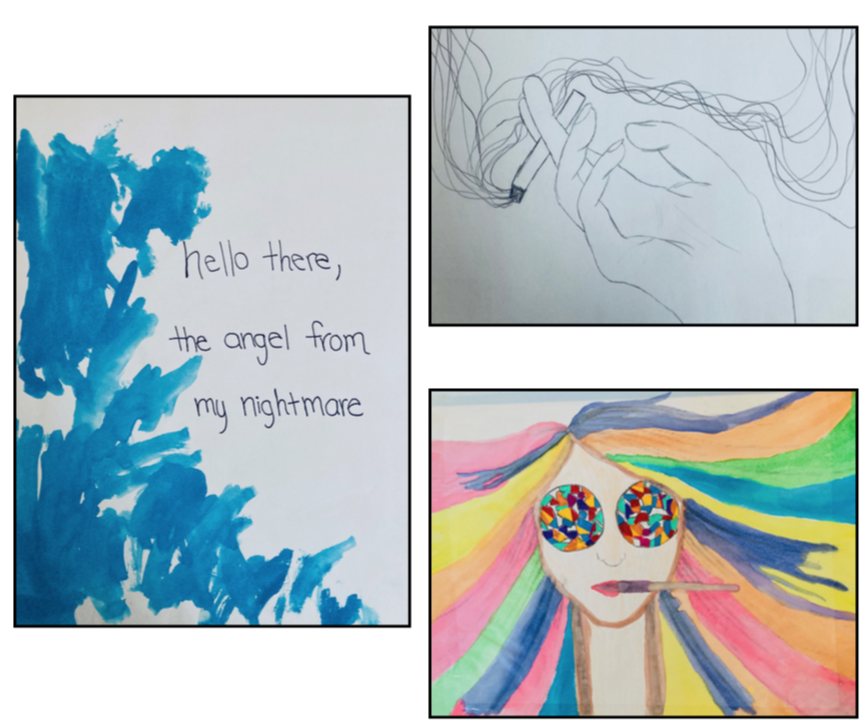 hello there,
the angel from
my nightmare